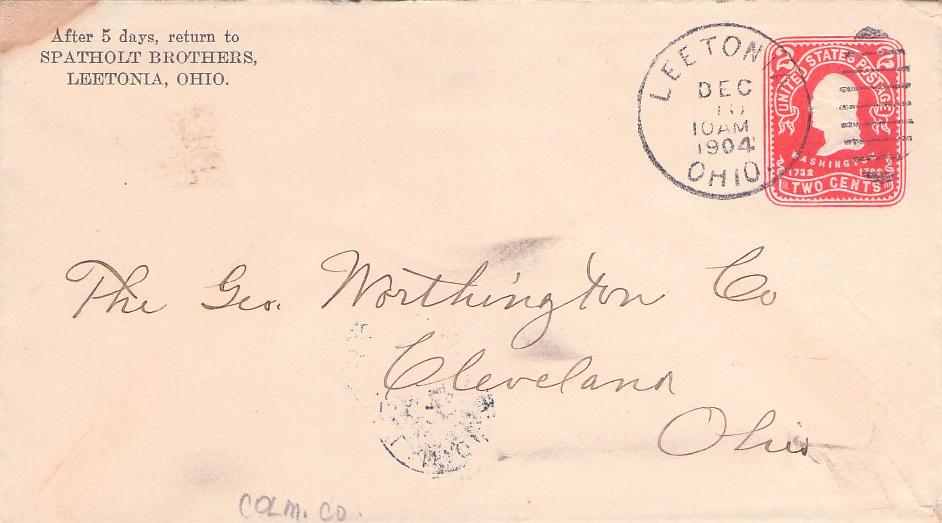 After 5 days, return to
SPATHOLT BROTHERS,
LEETONIA, OHIO.
LEETONIA
DEC
10
10AM
1904
OHIO
2 UNITED STATES POSTAGE 2
WASHINGTON
1732 1799
TWO CENTS
The Geo. Worthington Co
Cleveland
Ohio
COLM. CO.